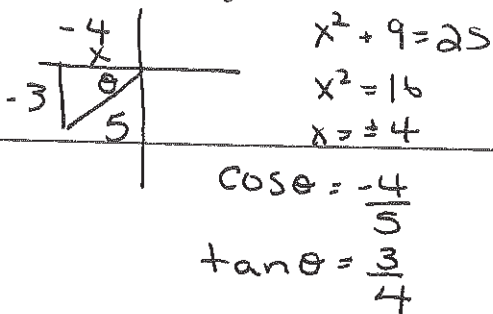 -4
x
θ
-3
5
x² + 9 = 25
x² = 16
x = ±4
cosθ = -4/5
tanθ = 3/4